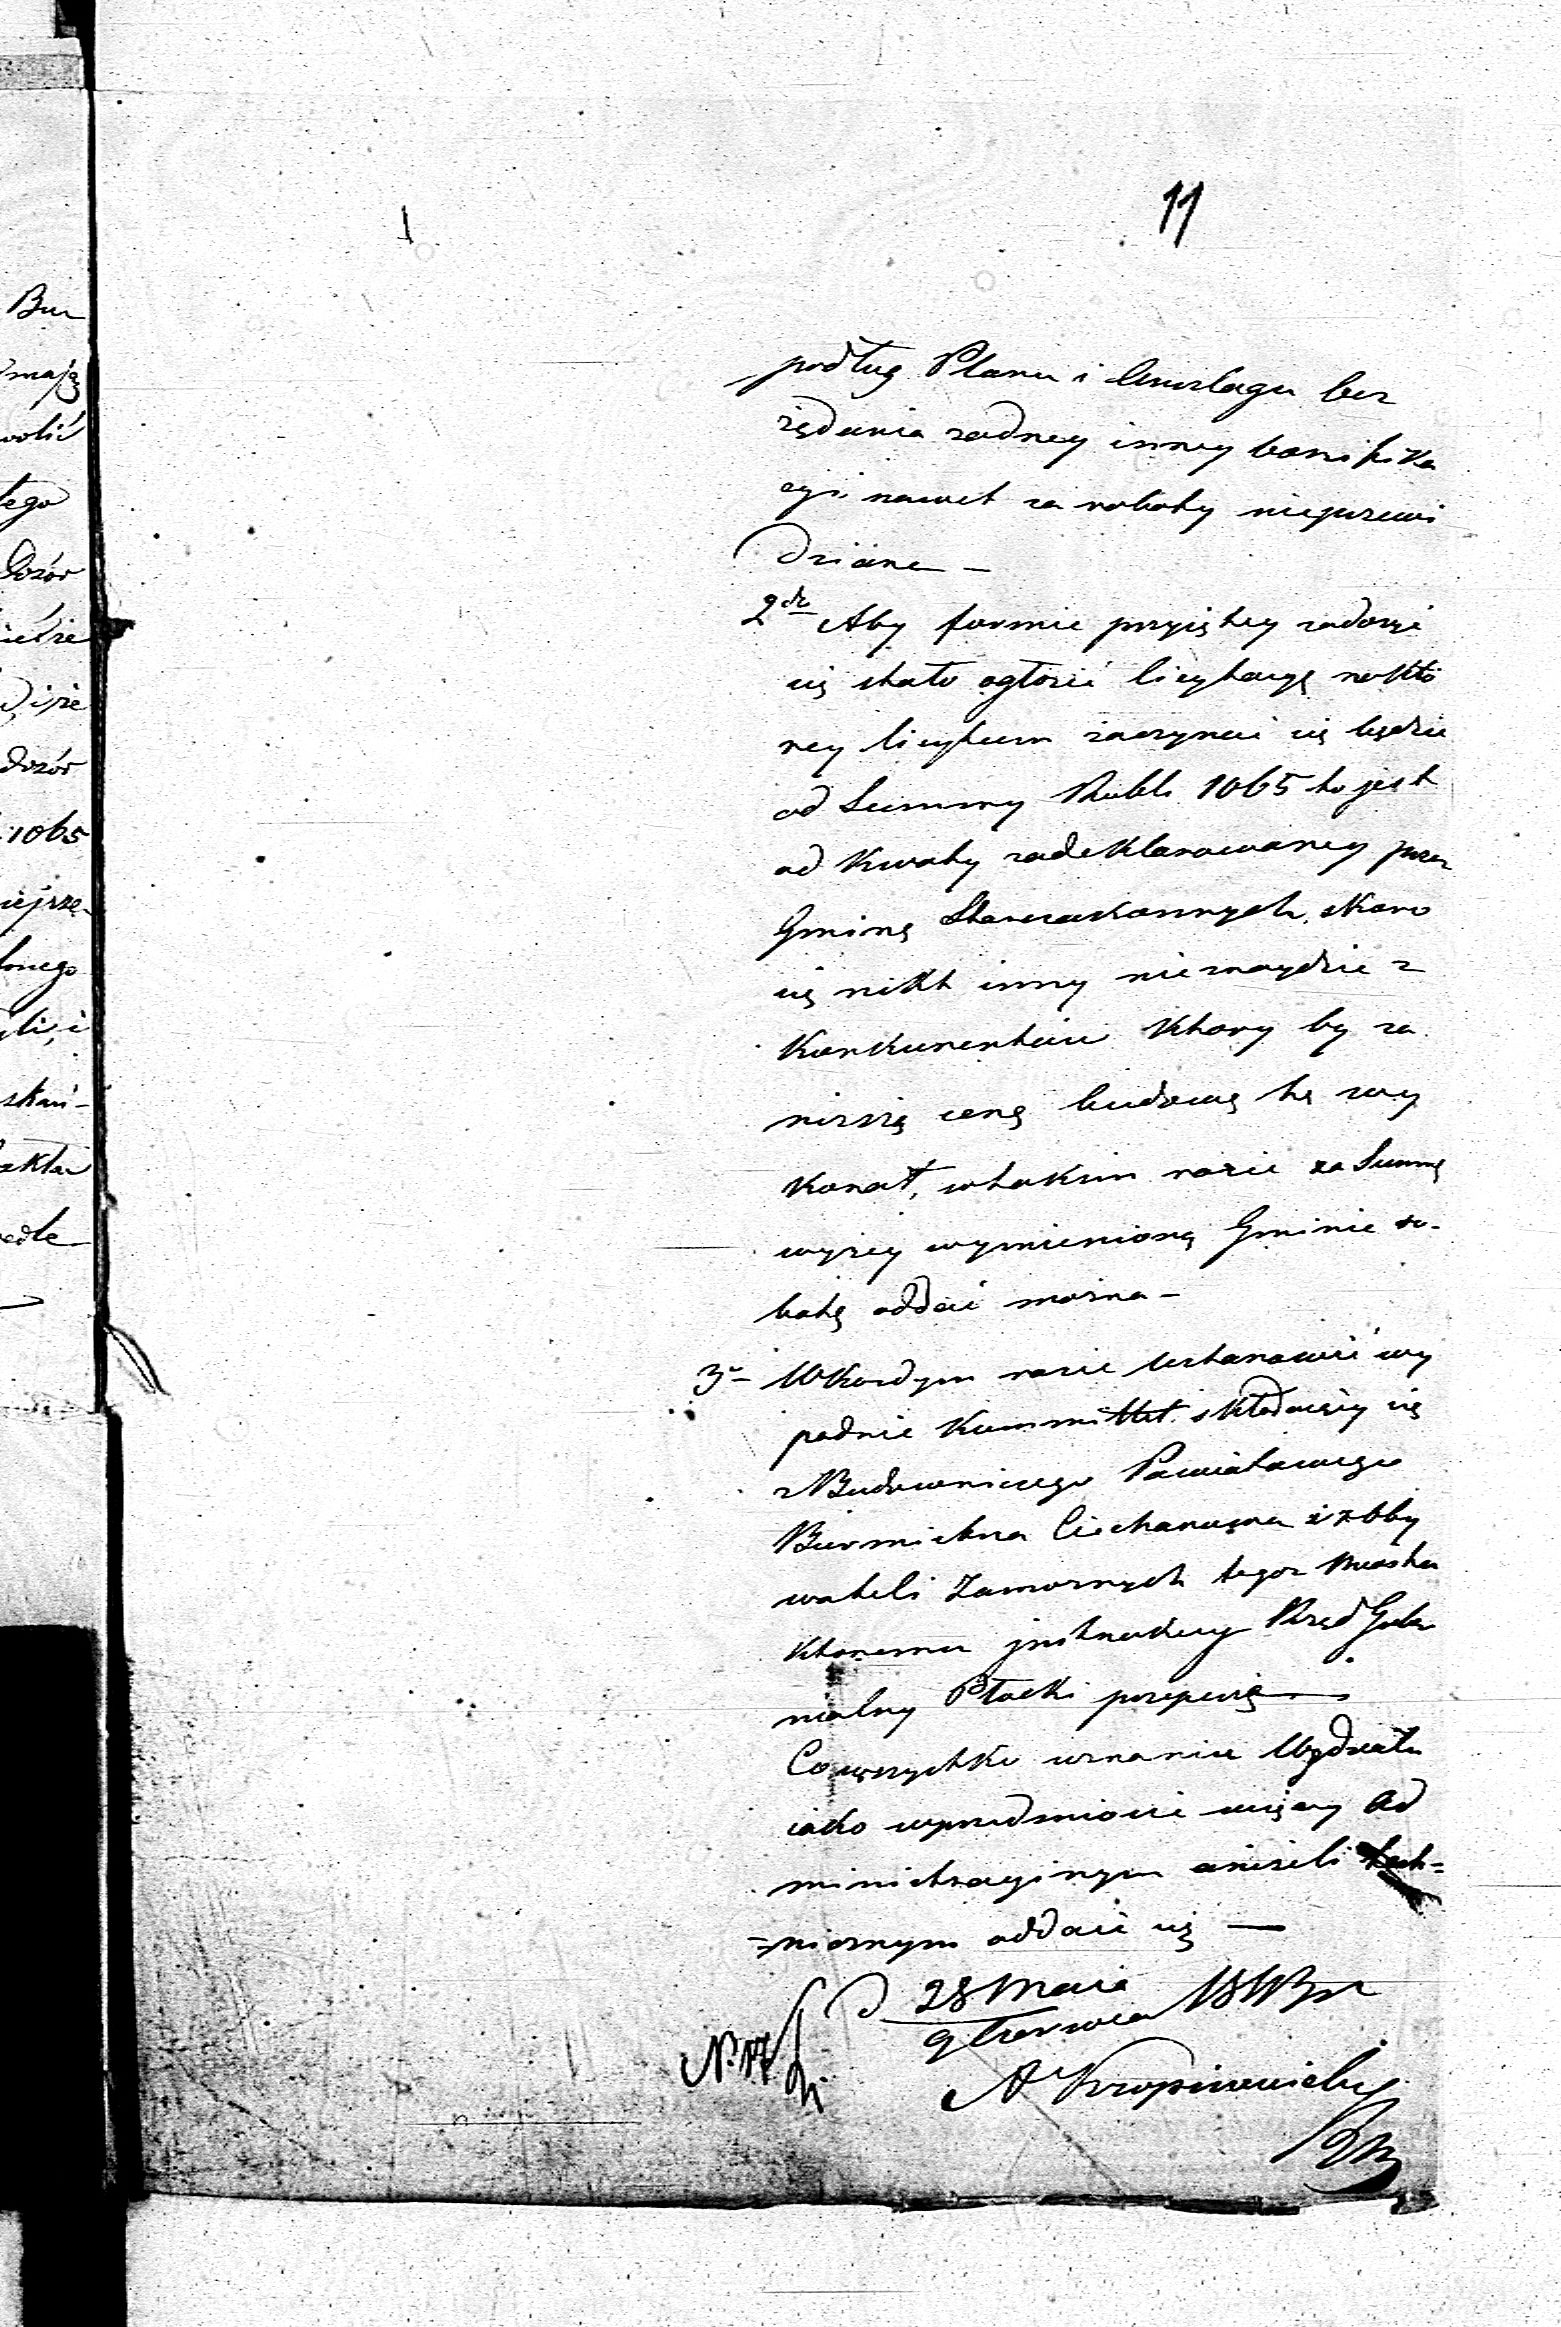 11
Bu
mają
wolić
tego
Dozór
dozór
1065
podług Planu i Anszlagu bez
żądania żadney inney bonifika
cyi nawet za roboty nieprzewi
dziane —
2do Aby formie przyiętey zadosyć
się stało ogłosić licytacyę na któ
rey licytum zaczynać się będzie
od Summy Rubli 1065 to jest
od kwoty zadeklarowaney przez
Gminę Starozakonnych, skoro
się nikt inny nie znaydzie z
Konkurentów który by za
niższą cenę budowę tę wy
konał, w takim razie za Summę
wyżey wymienioną Gminie ro-
botę oddać można —
3o W każdym razie ustanowić wy
padnie Kommittet składaiący się
z Budowniczego Powiatowego
Burmistrza Ciechanowa i z Oby
wateli Zamożnych tegoż Miasta
któremu instrukcyą Rząd Guber
nialny Płocki przepisze —
Co wszystko uznaniu Wydziału
iako w przedmiocie więcey Ad
ministracyinym aniżeli tech=
=nicznym oddaie się —
d 28 Maia
9 Czerwca 1843 r